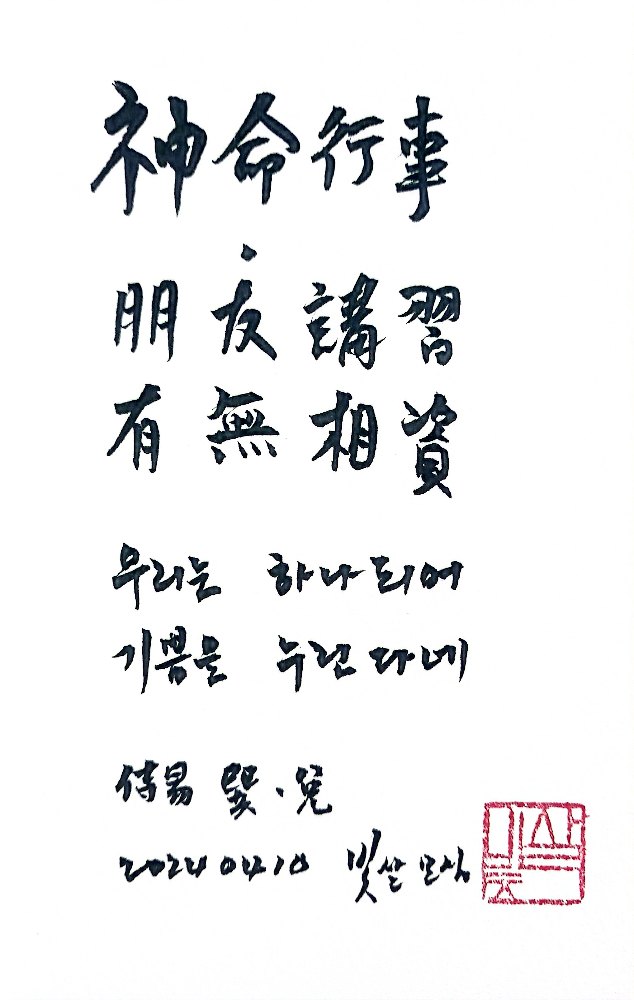 神命行事
·
朋友講習
有無相資
우리는 하나되어
기쁨을 누린다네
侍易 巽·兌
2024 04 10 빛살 모심